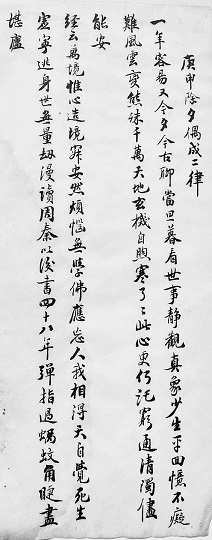 庚申除夕偶成二律
一年容易又今夕今古聊當旦暮看世事静觀真象少生平回憶不癡
難風雲變態殊千萬天地玄機自煦寒了々此心更何託窮通清濁儘
能安
經云萬境惟心造境寂安然煩惱無學佛應忘人我相得天自覺死生
虛寧逃身世無量劫漫讀周秦以後書四十八年彈指過蝸蚊角睫盡
堪廬